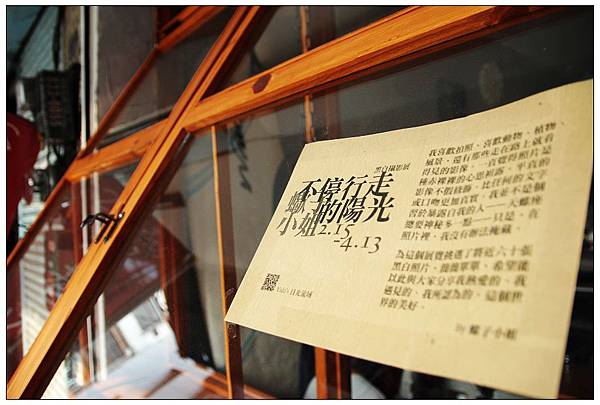 黑白攝影展
不停行走
的陽光
小姐
2.15
-4.13
我喜歡拍照、喜歡動物、植物
風景，還有那些走在路上就看
得見的影像。一直覺得照片是
種赤裸裸的心思袒露，平真的
影像不假修飾，比任何的文字
或口吻更加真實。我並不是個
習於暴露自我的人──天蠍座
總要神秘多一點──只是，在
照片裡，我沒有辦法掩藏。
為這個展覽挑選了將近六十張
黑白照片，簡簡單單，希望能
以此與大家分享我熱愛的、我
遇見的、我所認為的，這個世
界的美好。
By 蠍子小姐
日光